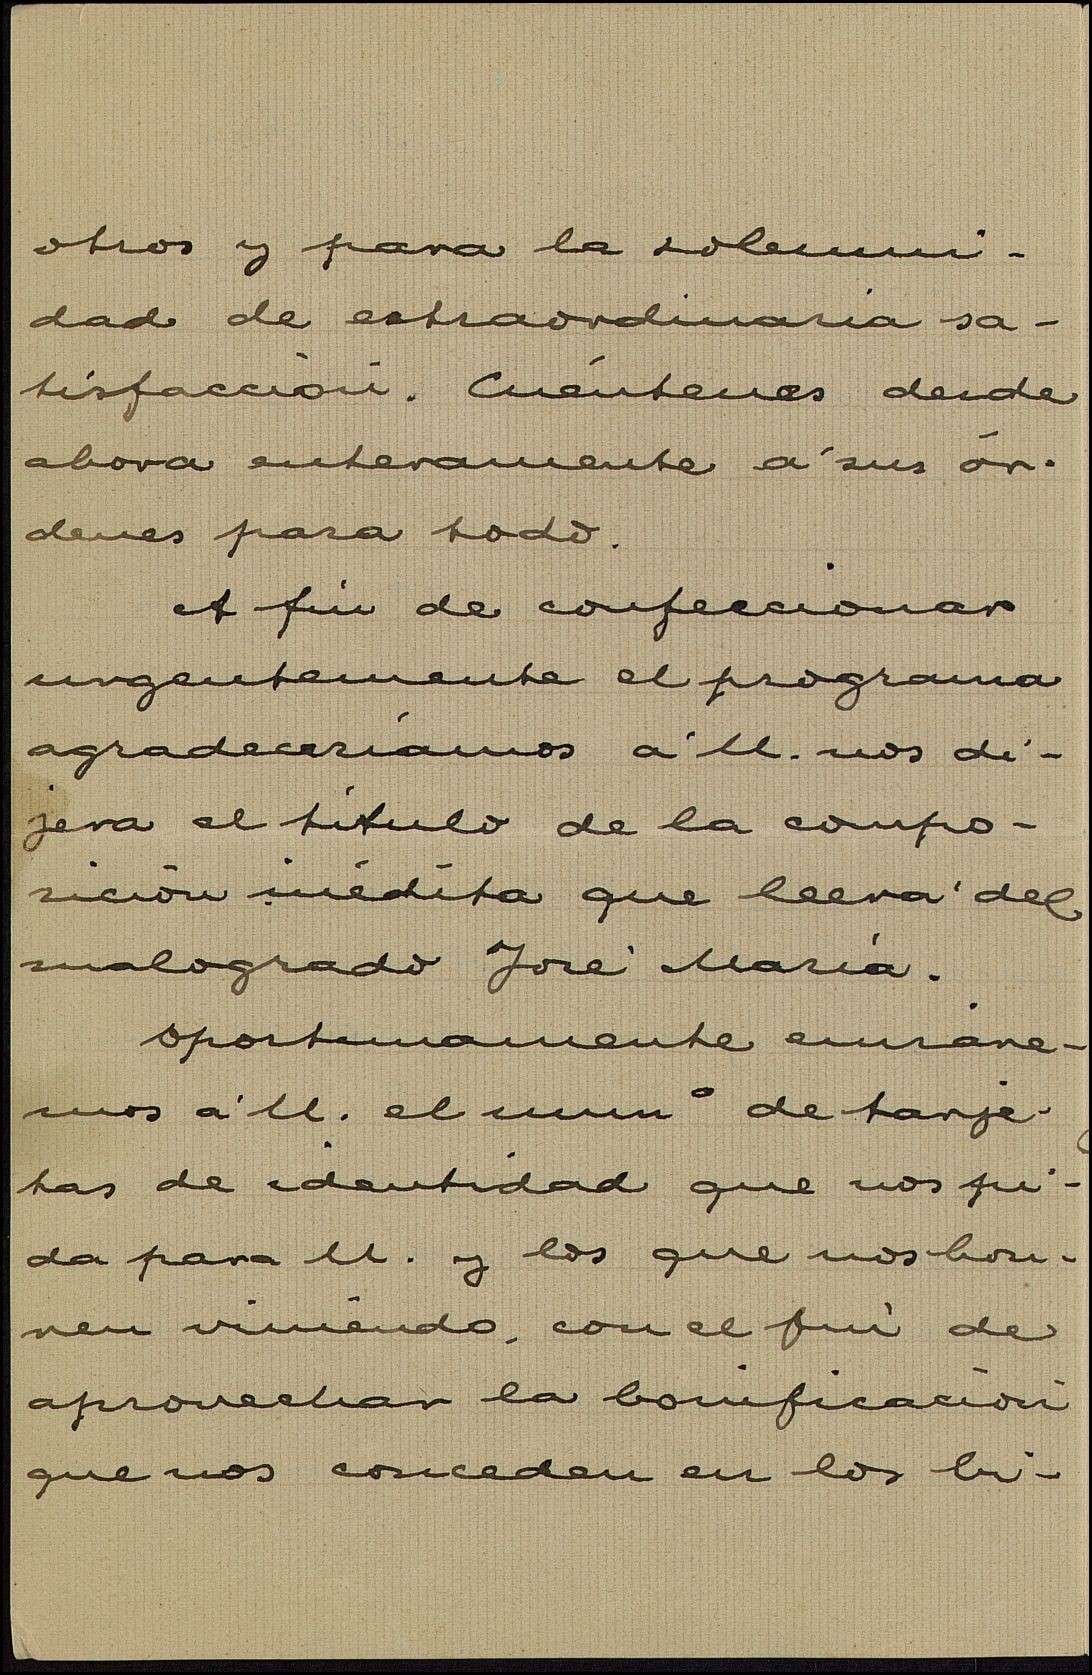 otros y para la solemni-
dad de extraordinaria sa-
tisfacción. Cuéntenos desde
ahora enteramente á sus ór-
denes para todo.
A fin de confeccionar
urgentemente el programa
agradeceríamos á U. nos di-
jera el título de la compo-
sición inédita que leerá del
malogrado José María.
Oportunamente enviare-
mos á U. el numº de tarje-
tas de identidad que nos pi-
da para U. y los que nos hon-
ren viniendo, con el fin de
aprovechar la bonificación
que nos conceden en los bi-